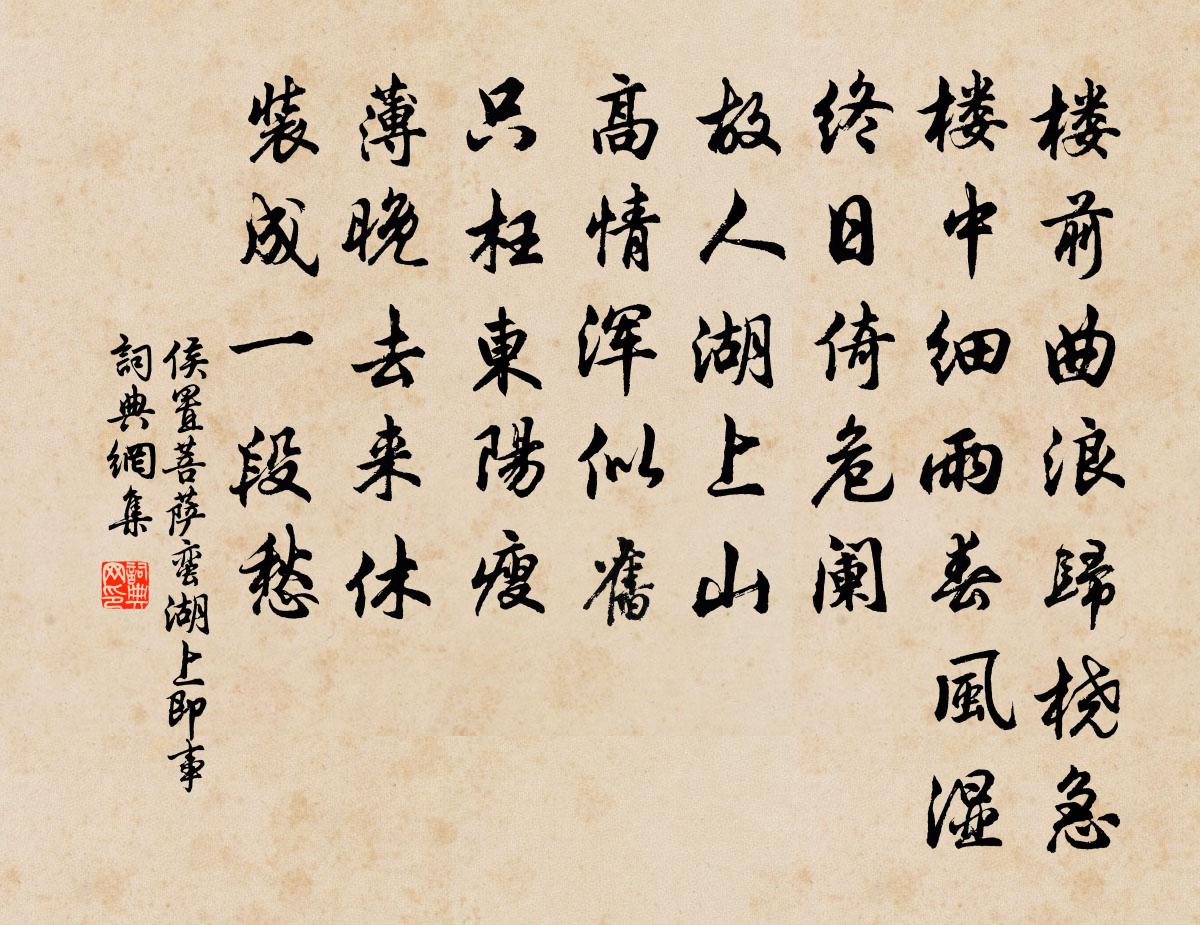 楼前曲浪歸桡急
楼中细雨春風湿
终日倚危阑
故人湖上山
高情浑似舊
只枉東陽瘦
薄晚去来休
装成一段愁
侯置菩萨蛮湖上即事
詞典網集
詞典网印